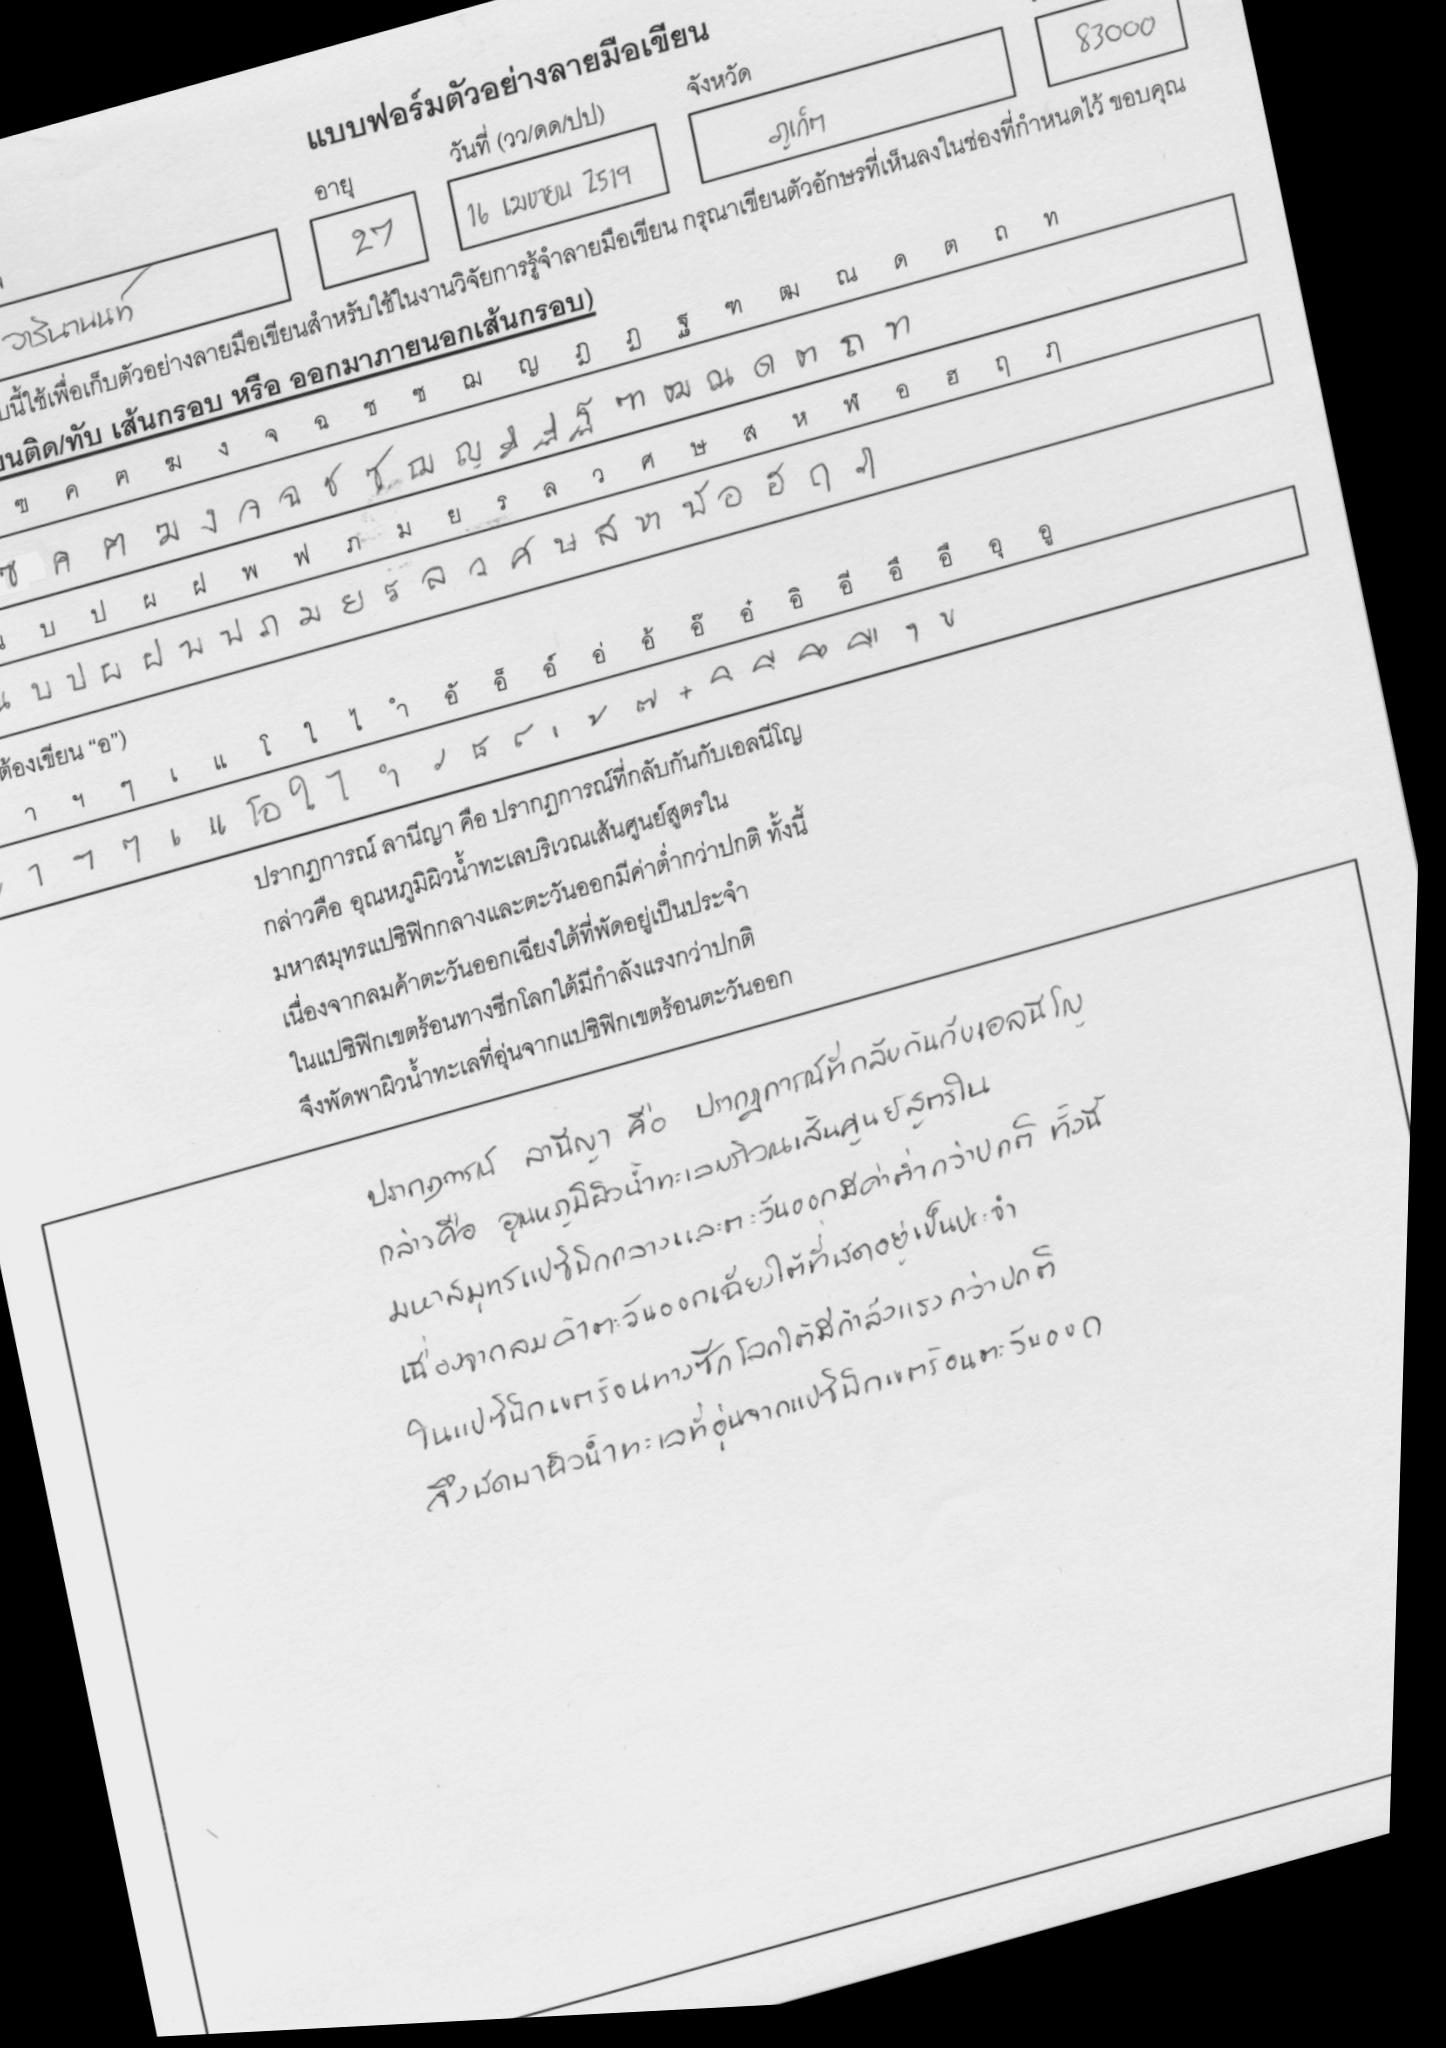 แบบฟอร์มตัวอย่างลายมือเขียน
อายุ วันที่ (วว/ดด/ปป) จังหวัด
27 16 เมษายน 2519 ภูเก็ต 83000
บนี้ใช้เพื่อเก็บตัวอย่างลายมือเขียนสำหรับใช้ในงานวิจัยการรู้จำลายมือเขียน กรุณาเขียนตัวอักษรที่เห็นลงในช่องที่กำหนดไว้ ขอบคุณ
ยนติด/ทับ เส้นกรอบ หรือ ออกมาภายนอกเส้นกรอบ)
ฃ ค ฅ ฆ ง จ ฉ ช ซ ฌ ญ ฎ ฏ ฐ ฑ ฒ ณ ด ต ถ ท
ฃ ค ฅ ฆ ง จ ฉ ช ซ ฌ ญ ฎ ฏ ฐ ฑ ฒ ณ ด ต ถ ท
น บ ป ผ ฝ พ ฟ ภ ม ย ร ล ว ศ ษ ส ห ฬ อ ฮ ฤ ฦ
น บ ป ผ ฝ พ ฟ ภ ม ย ร ล ว ศ ษ ส ห ฬ อ ฮ ฤ ฦ
ต้องเขียน “อ”)
า ฯ ๆ เ แ โ ใ ไ ำ อั อ็ อ์ อ่ อ้ อ๊ อ๋ อิ อี อึ อื อุ อู
ะ า ฯ ๆ เ แ โอ ใ ไ ำ ั ็ ์ ่ ้ ๊ ๋ ิ ี ึ ื ุ ู
ปรากฏการณ์ ลานีญา คือ ปรากฏการณ์ที่กลับกันกับเอลนีโญ
กล่าวคือ อุณหภูมิผิวน้ำทะเลบริเวณเส้นศูนย์สูตรใน
มหาสมุทรแปซิฟิกกลางและตะวันออกมีค่าต่ำกว่าปกติ ทั้งนี้
เนื่องจากลมค้าตะวันออกเฉียงใต้ที่พัดอยู่เป็นประจำ
ในแปซิฟิกเขตร้อนทางซีกโลกใต้มีกำลังแรงกว่าปกติ
จึงพัดพาผิวน้ำทะเลที่อุ่นจากแปซิฟิกเขตร้อนตะวันออก
ปรากฏการณ์ ลานีญา คือ ปรากฏการณ์ที่กลับกันกับเอลนีโญ
กล่าวคือ อุณหภูมิผิวน้ำทะเลบริเวณเส้นศูนย์สูตรใน
มหาสมุทรแปซิฟิกกลางและตะวันออกมีค่าต่ำกว่าปกติ ทั้งนี้
เนื่องจากลมค้าตะวันออกเฉียงใต้ที่พัดอยู่เป็นประจำ
ในแปซิฟิกเขตร้อนทางซีกโลกใต้มีกำลังแรงกว่าปกติ
จึงพัดพาผิวน้ำทะเลที่อุ่นจากแปซิฟิกเขตร้อนตะวันออก